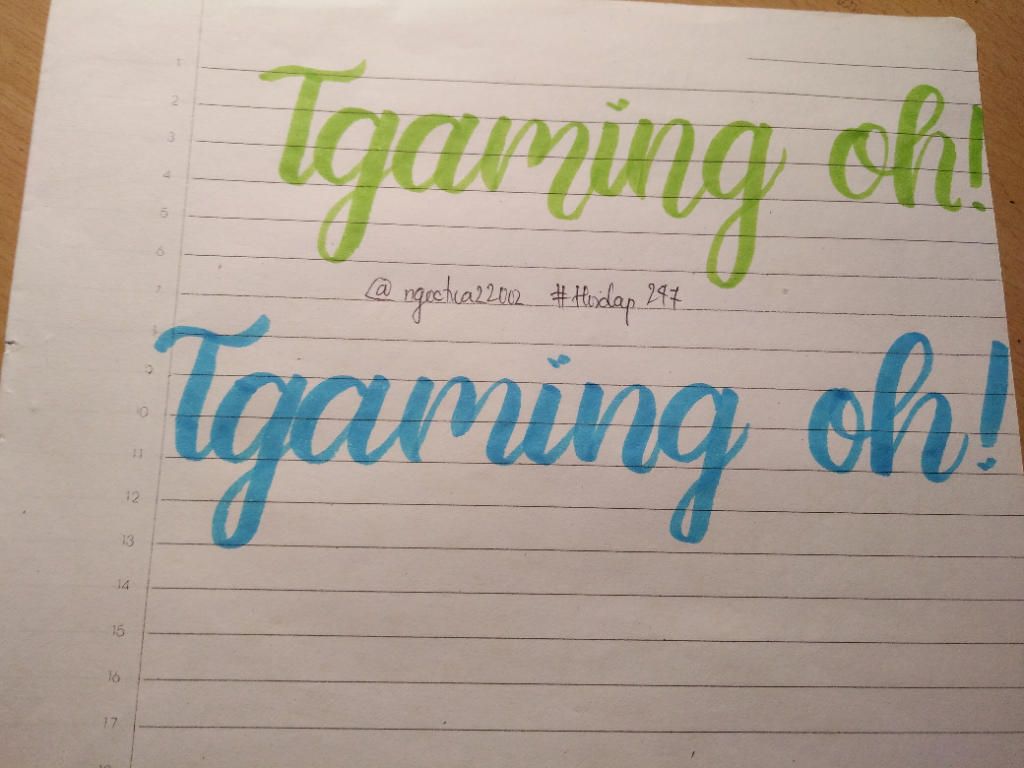 1
Tgaming oh!
2
3
4
5
6
7
@ngoctua22002 #Hoidap247
8
Tgaming oh!
9
10
11
12
13
14
15
16
17